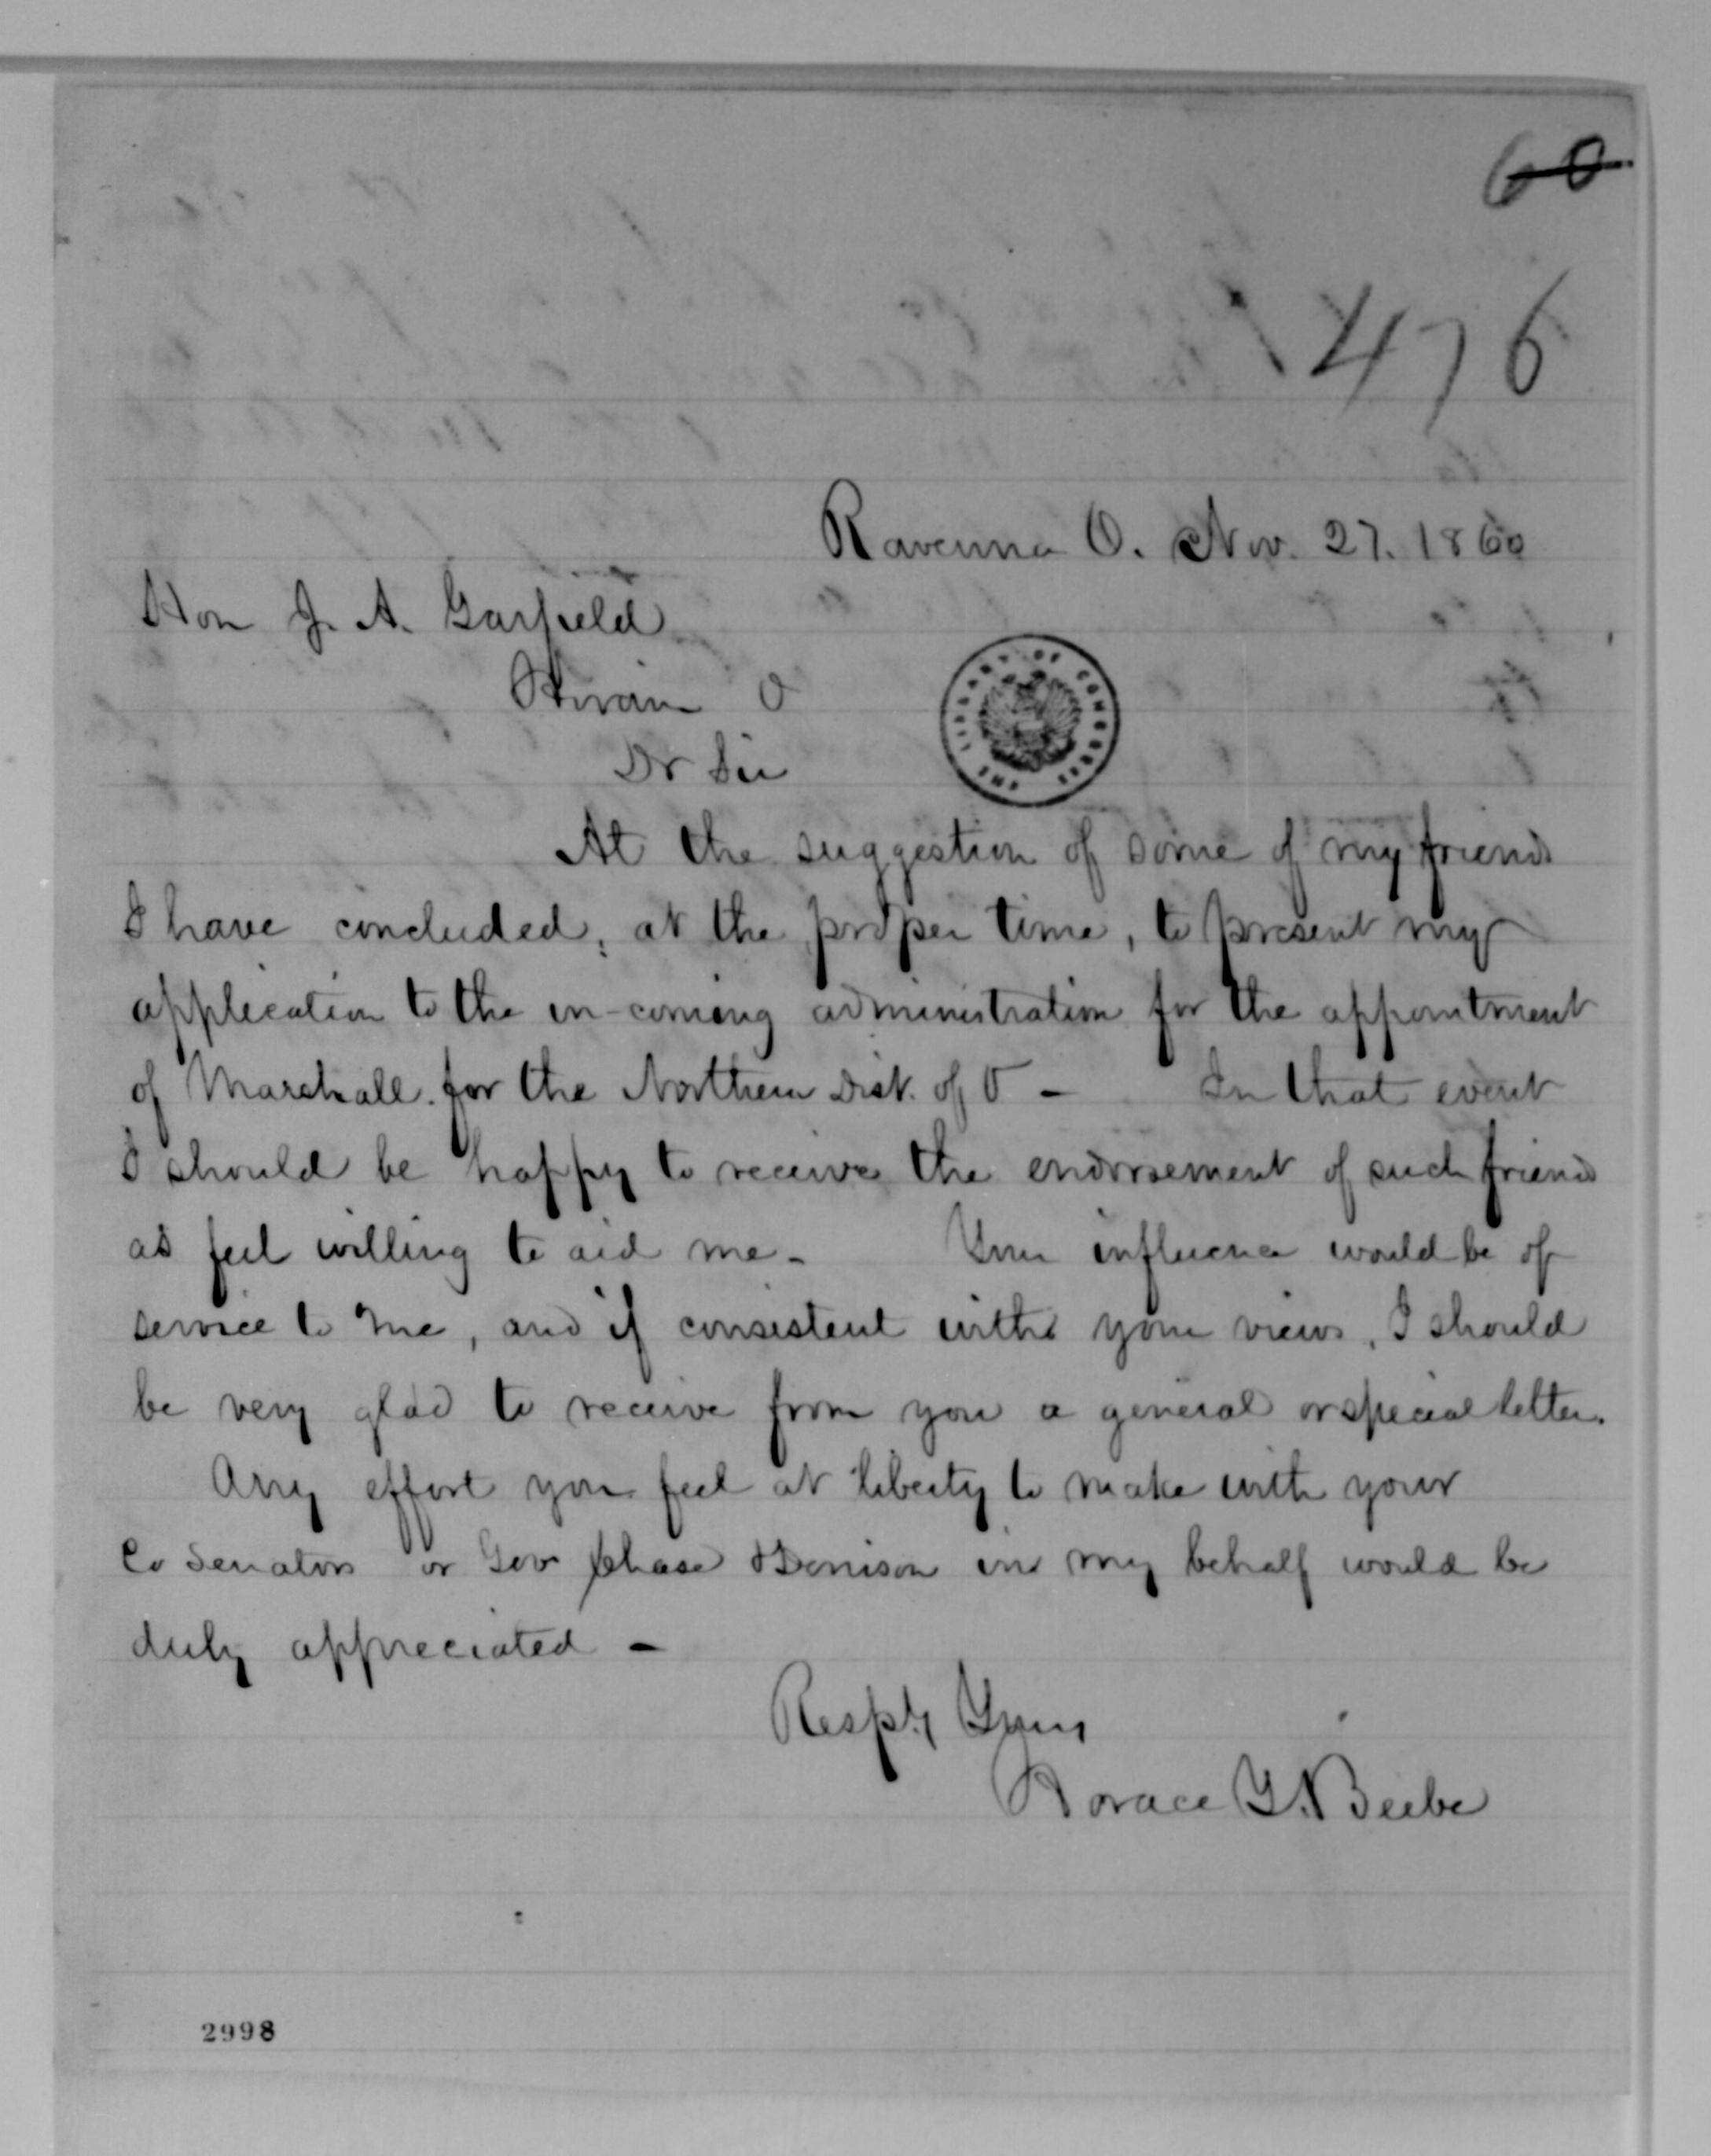 60
1476
Ravenna O. Nov. 27. 1860
Hon J. A. Garfield
Hiram O
Dr Sir
At the suggestion of some of my friends
I have concluded, at the proper time, to present my
application to the in-coming administration for the appointment
of Marshall for the Northern Dist. of O - In that event
I should be happy to receive the endorsement of such friends
as feel willing to aid me - Your influence would be of
service to me, and if consistent with your views, I should
be very glad to receive from you a general or special letter.
Any effort you feel at liberty to make with your
Co Senators or Gov Chase & Denison in my behalf would be
duly appreciated -
Resply Yours
Horace Y. Beebe
THE LIBRARY OF CONGRESS
2998